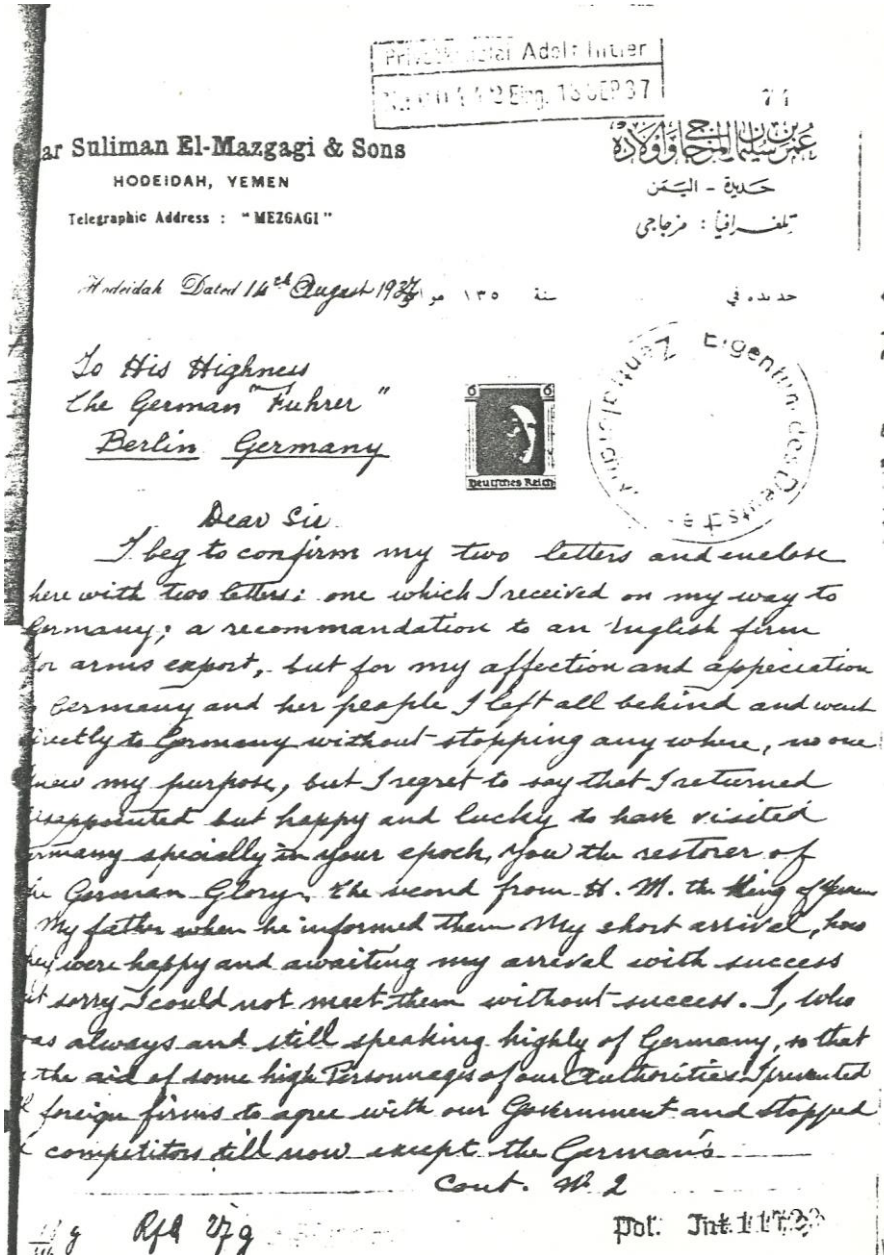 Adolf Hitler
Eing. 16 SEP 37
ar Suliman El-Mazgagi & Sons
HODEIDAH, YEMEN
Telegraphic Address : "MEZGAGI"
عمر بن سليمان المزجاجي وأولاده
حديدة - اليمن
تلغرافياً : مزجاجي
Hodeidah Dated 14th August 1937
حديده في سنة ١٣٥
To His Highness
The German "Fuhrer"
Berlin Germany
6 6
Deutsches Reich
Eigentum des Deutschen
Dear Sir
I beg to confirm my two letters and enclose
here with two letters: one which I received on my way to
Germany; a recommandation to an English firm
for arms export, but for my affection and appeciation
Germany and her people I left all behind and went
directly to Germany without stopping any where, no one
knew my purpose, but I regret to say that I returned
disappointed but happy and lucky to have visited
ermany specially in your epoch, you the restorer of
the German Glory. The second from H. M. the King of Yemen
My father when he informed them My short arrival, how
they were happy and awaiting my arrival with success
but sorry I could not meet them without success. I, who
was always and still speaking highly of Germany, so that
the aid of some high Personnages of our Authorities I prevented
foreign firms to agree with our Government and stopped
competitors till now except the German's
Cont. No 2